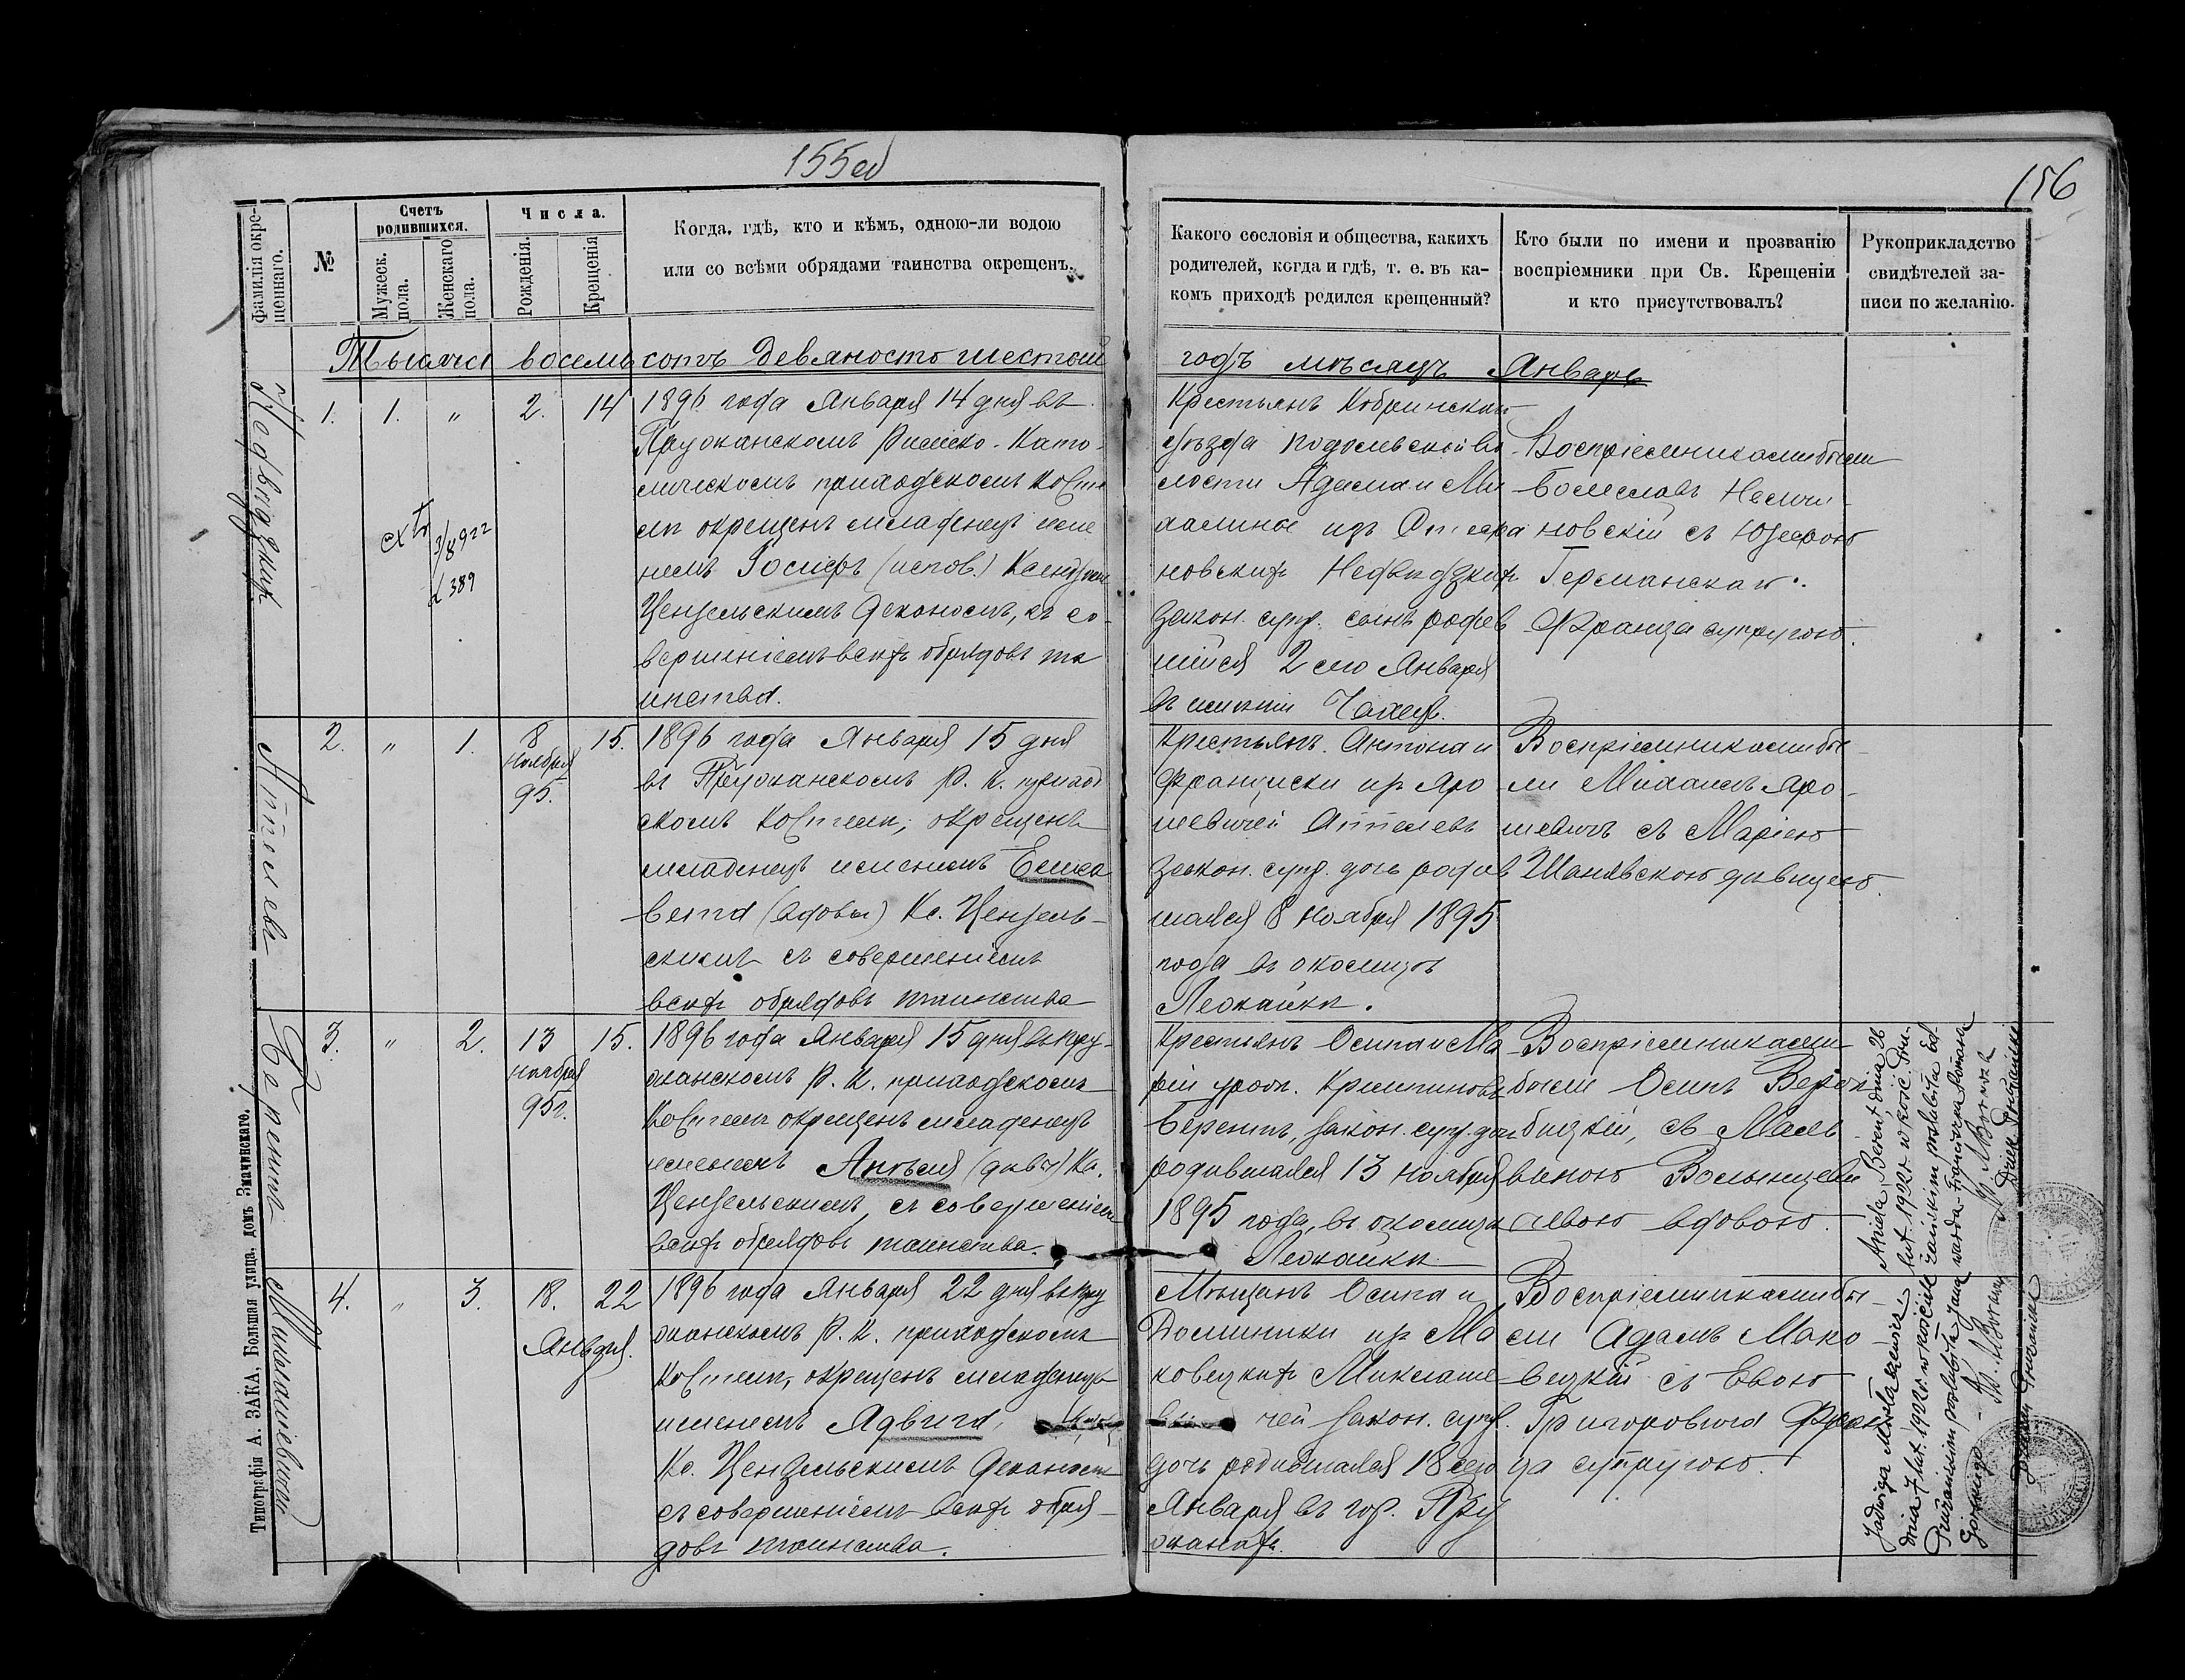 155об
156
Фамилія окре-
щеннаго.
№
Счетъ
родившихся.
Мужеск.
пола.
Женскаго
пола.
Числа.
Рожденія.
Крещенія
Когда, гдѣ, кто и кѣмъ, одною-ли водою
или со всѣми обрядами таинства окрещенъ.
Какого сословія и общества, какихъ
родителей, когда и гдѣ, т. е. въ ка-
комъ приходѣ родился крещенный?
Кто были по имени и прозванію
воспріемники при Св. Крещеніи
и кто присутствовалъ?
Рукоприкладство
свидѣтелей за-
писи по желанію.
Тысяча восемьсотъ девяносто шестой годъ мѣсяцъ Январь
Недвѣдзкій
1. 1. " 2. 14
1896 года Января 14 дня въ
Пружанскомъ Римско-Като-
лическомъ приходскомъ Костe
лѣ окрещенъ младенецъ име
немъ Іосифъ Ксендзомъ
Цензельскимъ Деканомъ, съ со-
вершеніемъ всѣхъ обрядовъ та
инства.
extr
3/8 922
d 389
Крестьянъ Кобринскаго
уѣзда Подолевской во
лости Адама и Ми
халины изъ
новскихъ Недвѣдзкихъ
закон. супр. сынъ родив
шійся 2 сего Января
въ имѣніи Чахецъ.
Воспріемниками были
Болеславъ Немчи-
новскій съ Юзефою
Германскою
Франца супругою.
Аттелева
2. " 1. 8
ноября
95. 15.
1896 года Января 15 дня
въ Пружанскомъ Р. К. приход
скомъ Костелѣ, окрещенъ
младенецъ именемъ Елиса
вета Кс. Цензель-
скимъ съ совершеніемъ
всѣхъ обрядовъ таинства
Крестьянъ Антона и
Франциски изъ Яро
шевичей Аттелевъ
закон. супр. дочь родив
шаяся 8 ноября 1895
года въ околицѣ
Леокайки.
Воспріемниками бы-
ли Михаилъ Яро-
шевичъ съ Маріею
Шанявскою дѣвицею.
Берентъ
3. " 2. 13
ноября
95г. 15.
1896 года Января 15 дня въ Пру-
жанскомъ Р. К. приходскомъ
Костелѣ окрещенъ младенецъ
именемъ Анѣеля Кс.
Цензельскимъ, съ совершеніемъ
всѣхъ обрядовъ таинства.
Крестьянъ Осипа и Ма
ріи урожд.
Берентъ, закон. супр. дочь
родившаяся 13 ноября
1895 года, въ околицѣ
Леокайки
Воспріемниками
были Осипъ
бицкій, съ Маль
виною Волынцеви
чевою вдовою.
Aniela Berent dnia 26
lut. 1922 r. w kość. Pru-
żańskim poślubiła Ed.
Миклашевичъ
4. " 3. 18.
Января. 22
1896 года Января 22 дня въ Пру
жанскомъ Р. К. приходскомъ
Костелѣ, окрещенъ младенецъ
именемъ Адвига,
Кс. Цензельскимъ Деканомъ
съ совершеніемъ всѣхъ обря-
довъ таинства.
Мѣщанъ Осипа и
Доминики изъ Ма
ковецкихъ Миклаше
ви чей закон. супр.
дочь родившаяся 18 сего
Января въ гор. Пру
жанахъ.
Воспріемниками бы-
ли Адамъ Мако-
вецкій съ Евою
Григоровича Фран
ца супругою.
Jadwiga Mikłaszewicz
dnia 7 lut. 1922 r. w kościele
Prużańskim poślubiła Jana
Типографія А. ЗАКА, Большая улица, домъ Значинскаго.